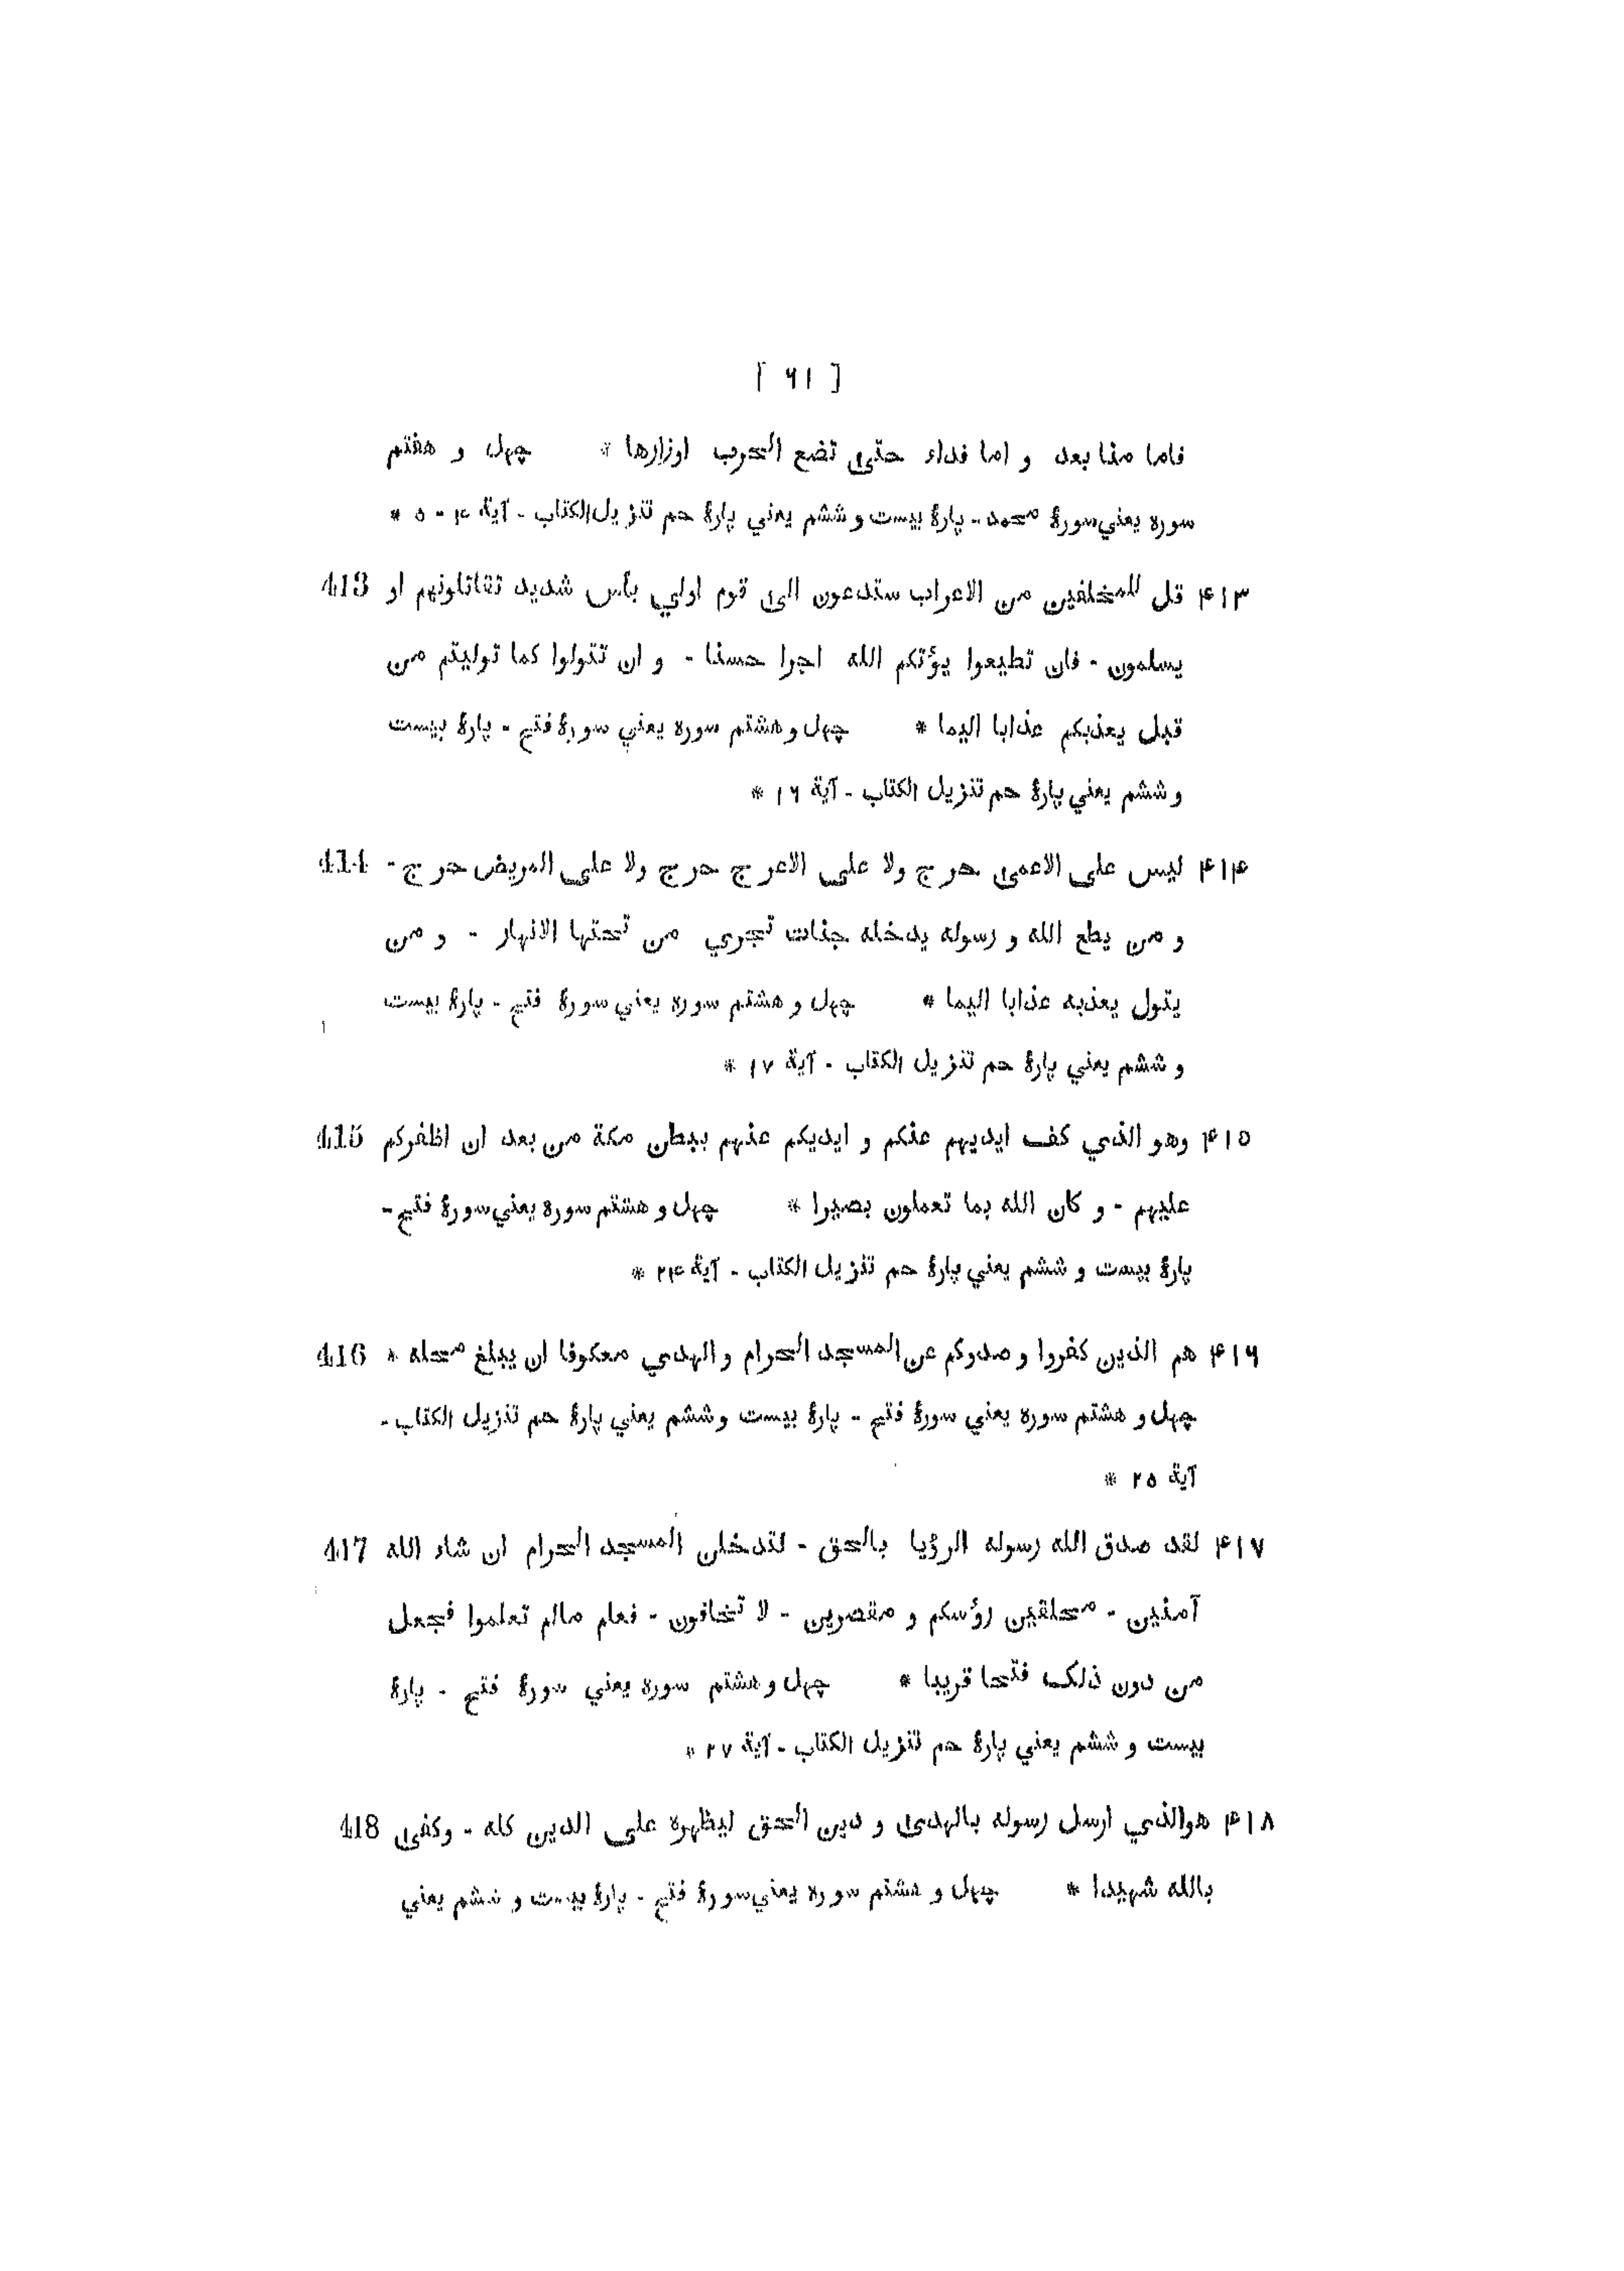 [ ۶۱ ]
فاما منا بعد و اما فداء حتى تضع الحرب اوزارها * چهل و هفتم
سوره يعني سورۀ محمد - پارۀ بيست و ششم يعني پارۀ حم تنزيل الكتاب - آية ۴ - ۵ *
۴۱۳ قل للمخلفين من الاعراب ستدعون الى قوم اولي بأس شديد تقاتلونهم او 413
يسلمون - فان تطيعوا يؤتكم الله اجرا حسنا - و ان تتولوا كما توليتم من
قبل يعذبكم عذابا اليما * چهل و هشتم سوره يعني سورۀ فتح - پارۀ بيست
و ششم يعني پارۀ حم تنزيل الكتاب - آية ۱۶ *
۴۱۴ ليس على الاعمى حرج ولا على الاعرج حرج ولا على المريض حرج - 414
و من يطع الله و رسوله يدخله جنات تجري من تحتها الانهار - و من
يتول يعذبه عذابا اليما * چهل و هشتم سوره يعني سورۀ فتح - پارۀ بيست
و ششم يعني پارۀ حم تنزيل الكتاب - آية ۱۷ *
۴۱۵ وهو الذي كف ايديهم عنكم و ايديكم عنهم ببطن مكة من بعد ان اظفركم 415
عليهم - و كان الله بما تعملون بصيرا * چهل و هشتم سوره يعني سورۀ فتح -
پارۀ بيست و ششم يعني پارۀ حم تنزيل الكتاب - آية ۲۴ *
۴۱۶ هم الذين كفروا و صدوكم عن المسجد الحرام و الهدي معكوفا ان يبلغ محله * 416
چهل و هشتم سوره يعني سورۀ فتح - پارۀ بيست و ششم يعني پارۀ حم تنزيل الكتاب -
آية ۲۵ *
۴۱۷ لقد صدق الله رسوله الرؤيا بالحق - لتدخلن المسجد الحرام ان شاء الله 417
آمنين - محلقين رؤسكم و مقصرين - لا تخافون - فعلم مالم تعلموا فجعل
من دون ذلك فتحا قريبا * چهل و هشتم سوره يعني سورۀ فتح - پارۀ
بيست و ششم يعني پارۀ حم تنزيل الكتاب - آية ۲۷ *
۴۱۸ هوالذي ارسل رسوله بالهدى و دين الحق ليظهره على الدين كله - وكفى 418
بالله شهيدا * چهل و هشتم سوره يعني سورۀ فتح - پارۀ بيست و ششم يعني